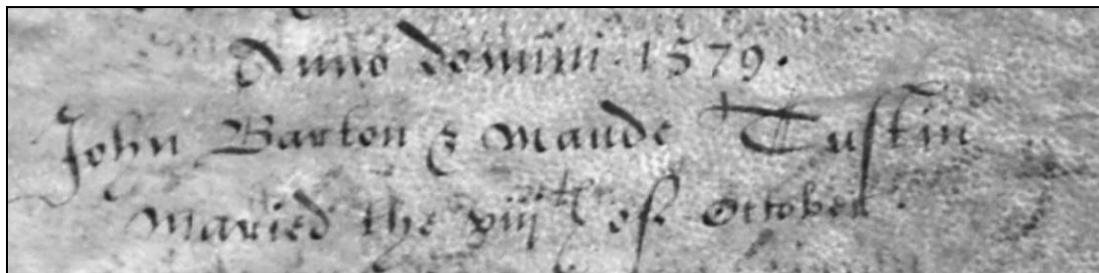 Anno domini 1579.
John Barton & Maude Tustin
Maried the xiijth of October.